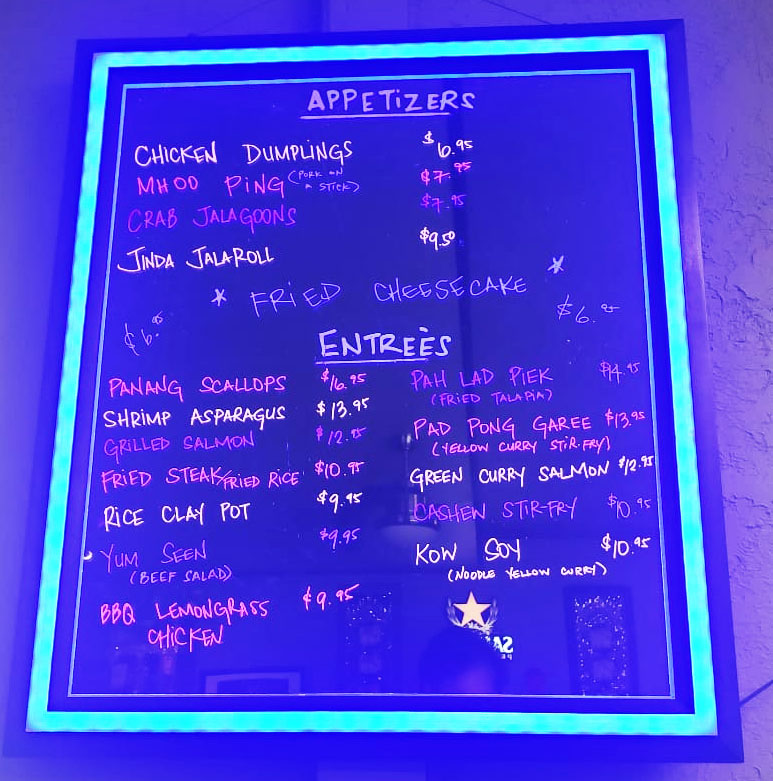 APPETIZERS
CHICKEN DUMPLINGS $6.95
MHOO PING (PORK ON A STICK) $7.95
CRAB JALAGOONS $7.95
JINDA JALAROLL $9.50
* FRIED CHEESECAKE *
$6.95 $6.95
ENTREÈS
PANANG SCALLOPS $16.95
SHRIMP ASPARAGUS $13.95
GRILLED SALMON $12.95
FRIED STEAK/FRIED RICE $10.95
RICE CLAY POT $9.95
YUM SEEN $9.95
(BEEF SALAD)
BBQ LEMONGRASS $9.95
CHICKEN
PAH LAD PIEK $14.95
(FRIED TALAPIA)
PAD PONG GAREE $13.95
(YELLOW CURRY STIR-FRY)
GREEN CURRY SALMON $12.95
CASHEW STIR-FRY $10.95
KOW SOY $10.95
(NOODLE YELLOW CURRY)